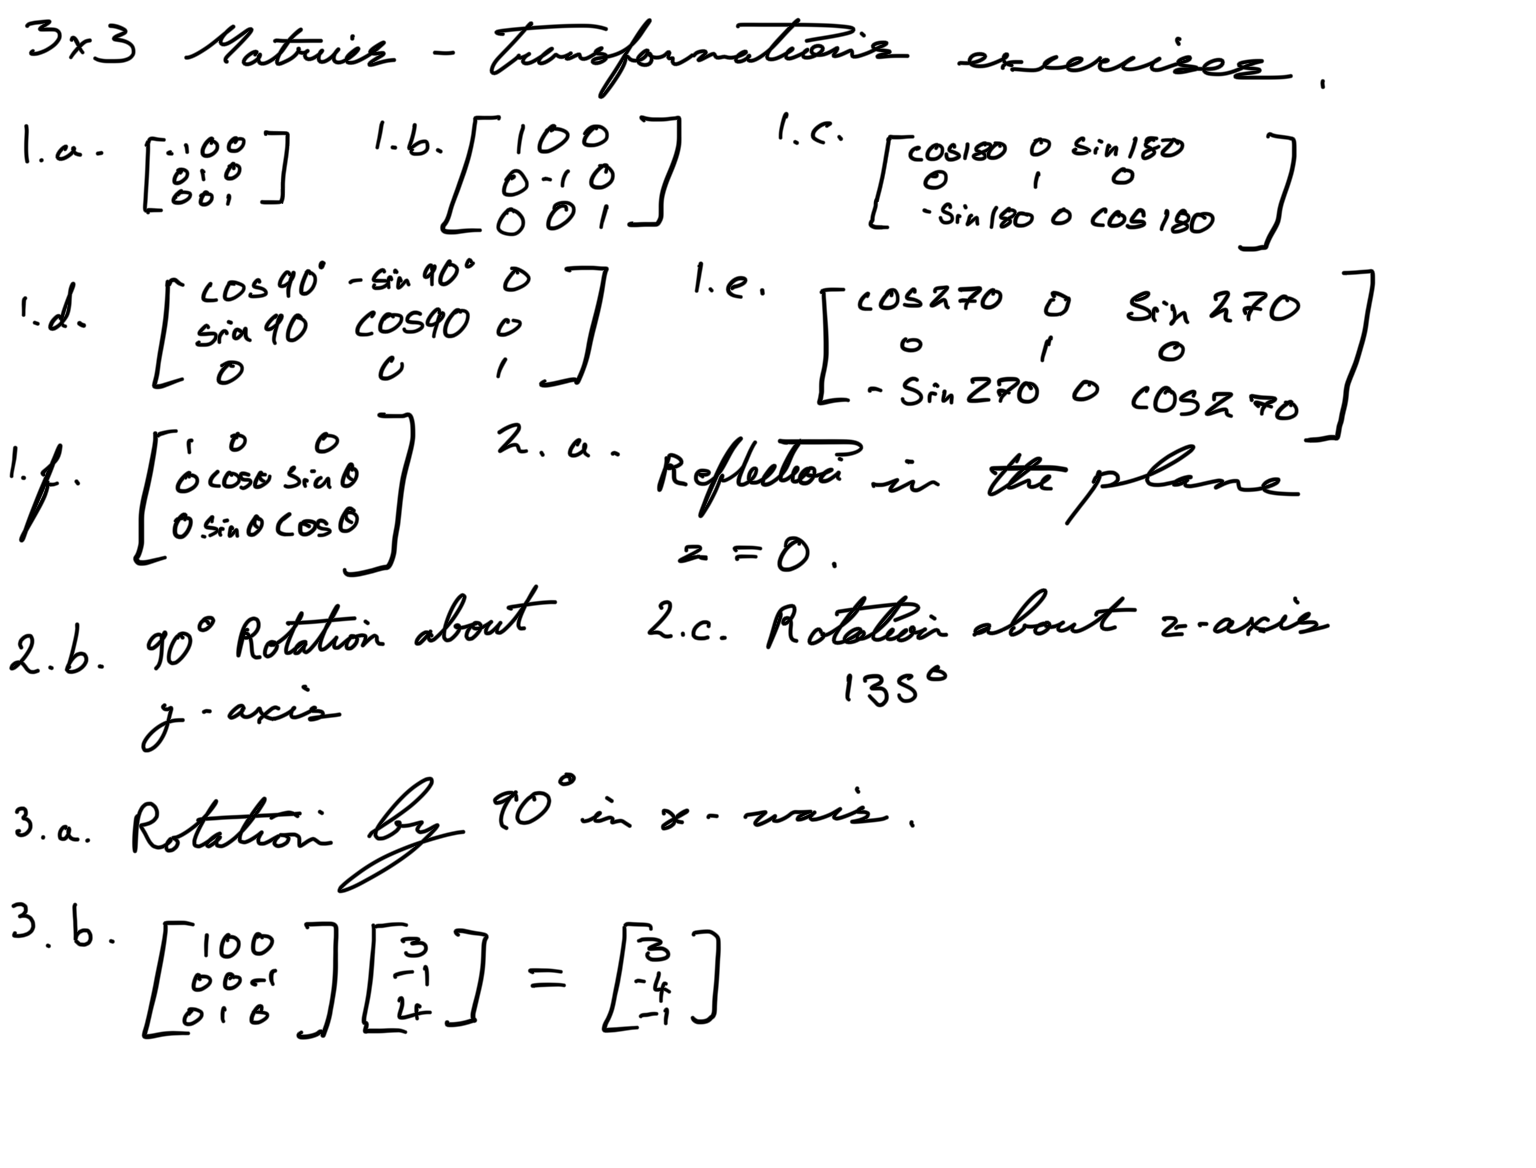 3x3 Matrices - transformations exercises.
1.a. [-1 0 0
0 1 0
0 0 1]
1.b. [1 0 0
0 -1 0
0 0 1]
1.c. [cos180 0 sin180
0 1 0
-Sin180 0 cos180]
1.d. [cos90° -sin90° 0
sin90 cos90 0
0 0 1]
1.e. [cos270 0 Sin270
0 1 0
-Sin270 0 cos270]
1.f. [1 0 0
0 cosθ sinθ
0 sinθ cosθ]
2.a. Reflection in the plane
z = 0.
2.b. 90° Rotation about
y-axis
2.c. Rotation about z-axis
135°
3.a. Rotation by 90° in x-
3.b. [1 0 0
0 0 -1
0 1 0] [3
-1
4] = [3
-4
-1]